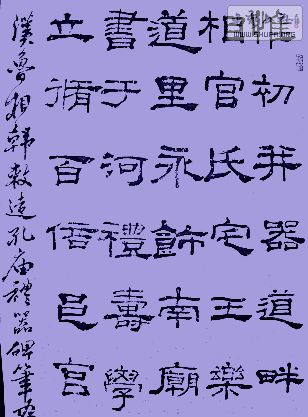 惟初并器道畔
相官氏宅王樂
道里永飾南廟
書于河禮壽學
立循百邑宮
漢魯相韓敕造孔庙禮器碑筆